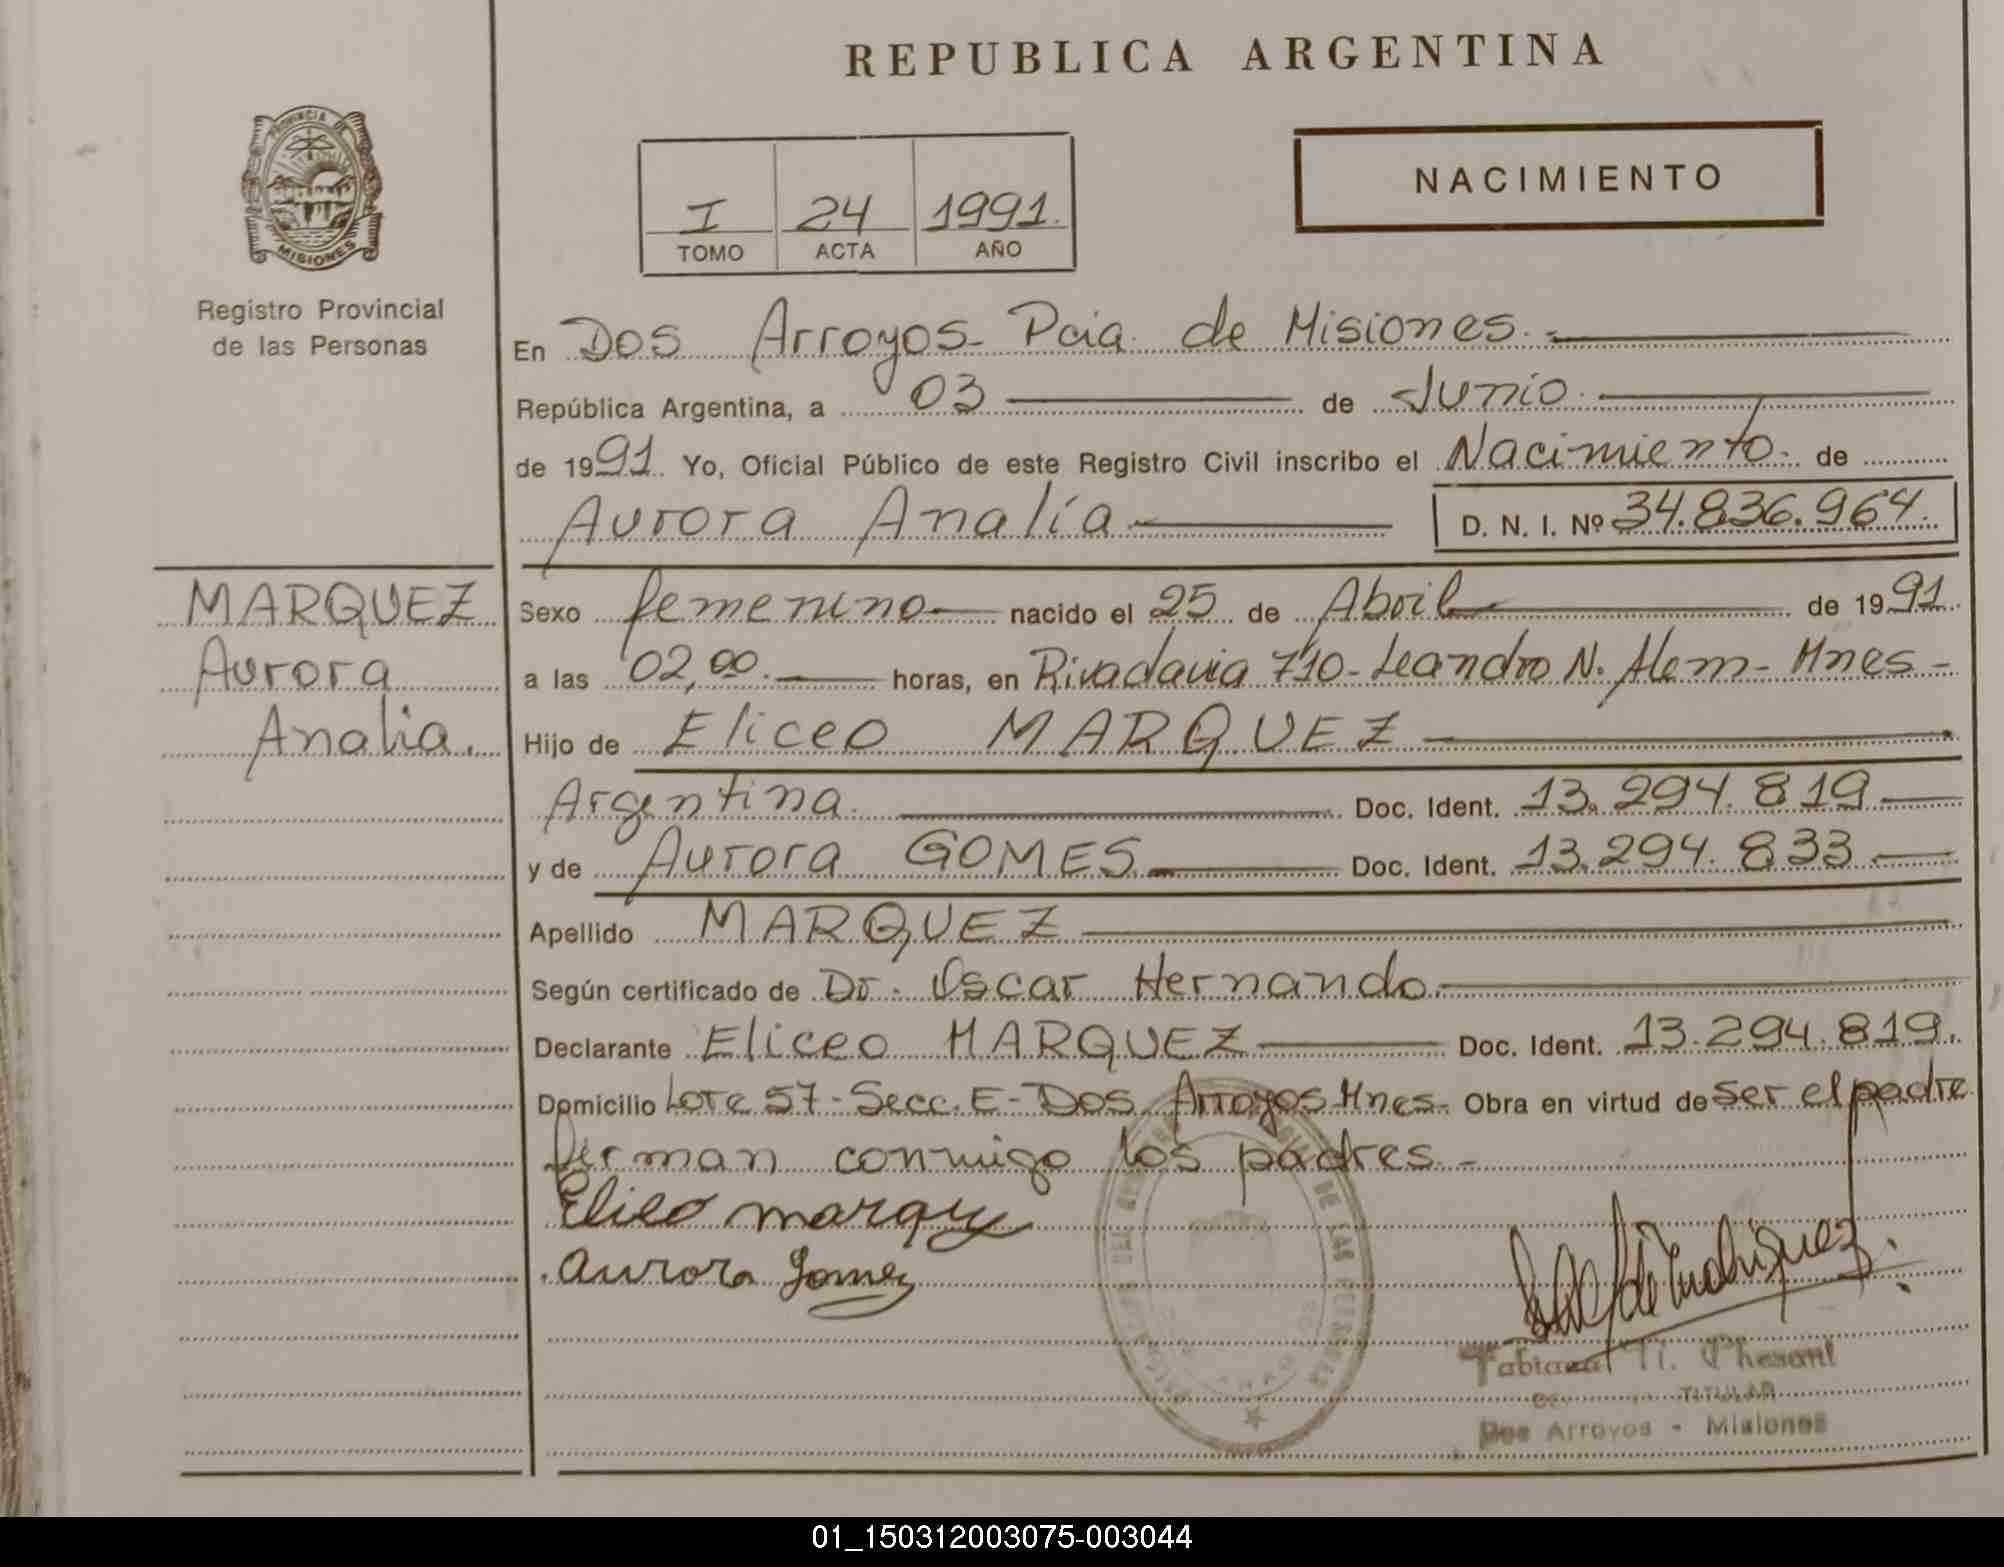 REPUBLICA ARGENTINA
PROVINCIA DE
MISIONES
Registro Provincial
de las Personas
I 24 1991.
TOMO ACTA AÑO
NACIMIENTO
En Dos Arroyos - Pcia. de Misiones. -
República Argentina, a 03 de Junio.
de 1991. Yo, Oficial Público de este Registro Civil inscribo el Nacimiento. de
Aurora Analía. D. N. I. Nº 34.836.964.
MARQUEZ
Aurora
Analia.
Sexo femenino nacido el 25 de Abril de 1991.
a las 02,00. horas, en Rivadavia 710 - Leandro N. Alem - Mnes -
Hijo de Eliceo MARQUEZ
Argentina. Doc. Ident. 13.294.819
y de Aurora GOMES Doc. Ident. 13.294.833
Apellido MARQUEZ
Según certificado de Dr. Oscar Hernando.
Declarante Eliceo MARQUEZ Doc. Ident. 13.294.819.
Domicilio Lote 57 - Secc. E - Dos Arroyos Mnes. Obra en virtud de ser el padre
firman conmigo los padres. -
Eliseo marquez
aurora Gomez
DE LAS
TITULAR
Dos Arroyos - Misiones
01_150312003075-003044